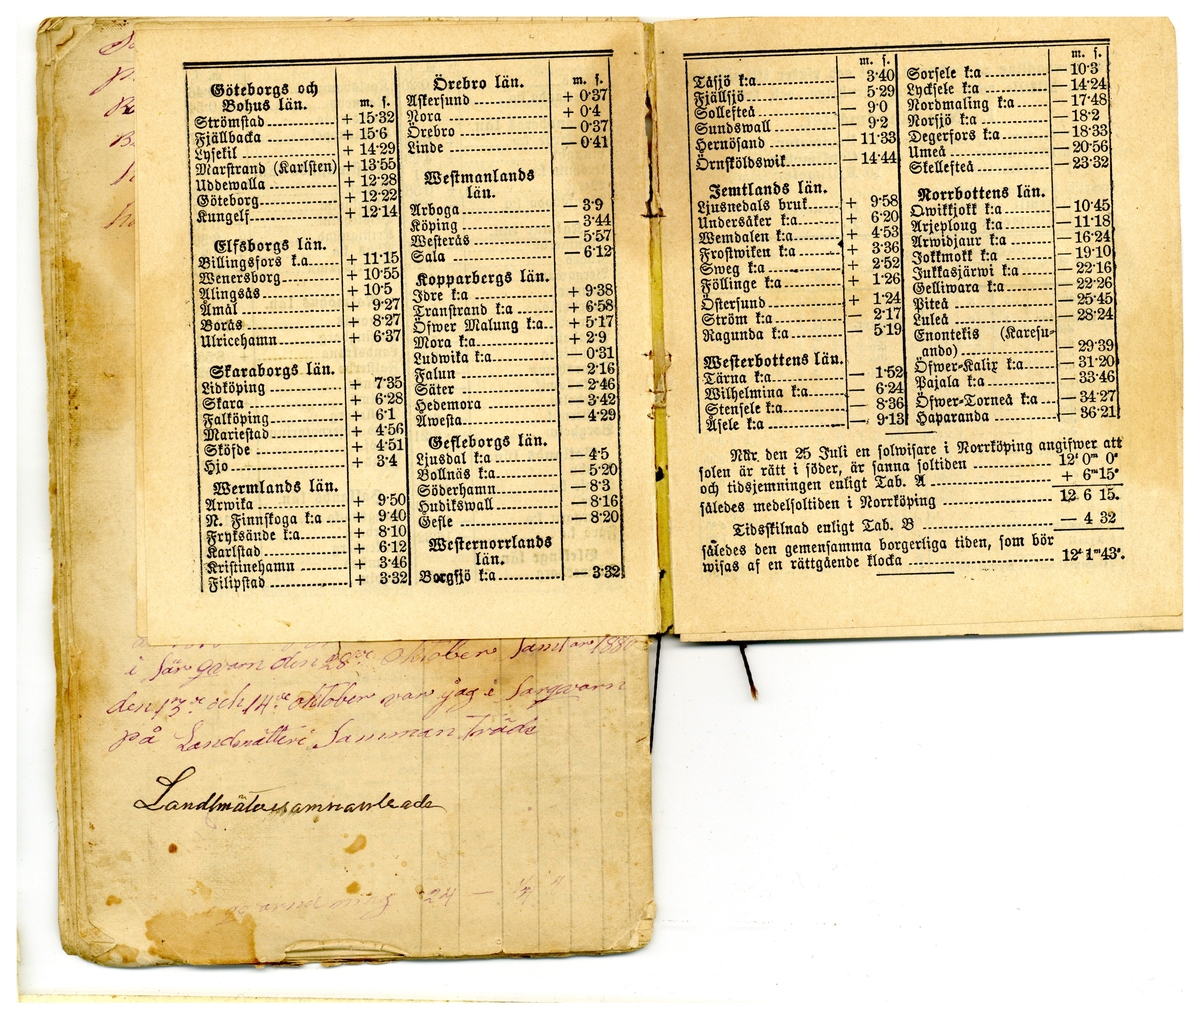 Göteborgs och
Bohus län. m. s.
Strömstad + 15·32
Fjällbacka + 15·6
Lysekil + 14·29
Marstrand (Karlsten) + 13·55
Uddewalla + 12·28
Göteborg + 12·22
Kungelf + 12·14
Elfsborgs län.
Billingsfors k:a + 11·15
Wenersborg + 10·55
Alingsås + 10·5
Åmål + 9·27
Borås + 8·27
Ulricehamn + 6·37
Skaraborgs län.
Lidköping + 7·35
Skara + 6·28
Falköping + 6·1
Mariestad + 4·56
Sköfde + 4·51
Hjo + 3·4
Wermlands län.
Arwika + 9·50
N. Finnskoga k:a + 9·40
Fryksände k:a + 8·10
Karlstad + 6·12
Kristinehamn + 3·46
Filipstad + 3·32
Örebro län. m. s.
Askersund + 0·37
Nora + 0·4
Örebro — 0·37
Linde — 0·41
Westmanlands
län.
Arboga — 3·9
Köping — 3·44
Westerås — 5·57
Sala — 6·12
Kopparbergs län.
Idre k:a + 9·38
Transtrand k:a + 6·58
Öfwer Malung k:a + 5·17
Mora k:a + 2·9
Ludwika k:a — 0·31
Falun — 2·16
Säter — 2·46
Hedemora — 3·42
Awesta — 4·29
Gefleborgs län.
Ljusdal k:a — 4·5
Bollnäs k:a — 5·20
Söderhamn — 8·3
Hudikswall — 8·16
Gefle — 8·20
Westernorrlands
län.
Borgsjö k:a — 3·32
m. s.
Tåsjö k:a — 3·40
Fjällsjö — 5·29
Sollefteå — 9·0
Sundswall — 9·2
Hernösand — 11·33
Örnsköldswik — 14·44
Jemtlands län.
Ljusnedals bruk + 9·58
Undersåker k:a + 6·20
Wemdalen k:a + 4·53
Frostwiken k:a + 3·36
Sweg k:a + 2·52
Föllinge k:a + 1·26
Östersund + 1·24
Ström k:a — 2·17
Ragunda k:a — 5·19
Westerbottens län.
Tärna k:a — 1·52
Wilhelmina k:a — 6·24
Stensele k:a — 8·36
Åsele k:a — 9·13
m. s.
Sorsele k:a — 10·3
Lycksele k:a — 14·24
Nordmaling k:a — 17·48
Norsjö k:a — 18·2
Degerfors k:a — 18·33
Umeå — 20·56
Skellefteå — 23·32
Norrbottens län.
Qwikkjokk k:a — 10·45
Arjeploug k:a — 11·18
Arwidjaur k:a — 16·24
Jokkmokk k:a — 19·10
Jukkasjärwi k:a — 22·16
Gelliwara k:a — 22·26
Piteå — 25·45
Luleå — 28·24
Enontekis (Karesu-
ando) — 29·39
Öfwer-Kalix k:a — 31·20
Pajala k:a — 33·46
Öfwer-Torneå k:a — 34·27
Haparanda — 36·21
När den 25 Juli en solwisare i Norrköping angifwer att
solen är rätt i söder, är sanna soltiden 12t 0m 0s
och tidsjemningen enligt Tab. A + 6m 15s
således medelsoltiden i Norrköping 12 6 15.
Tidsskilnad enligt Tab. B — 4 32
således den gemensamma borgerliga tiden, som bör
wisas af en rättgående klocka 12t 1m 43s.
i Särqvarn den 28de oktober Samt år 1880
den 13de och 14de oktober var jag i Sarqvarn
på Landmätteri Samman träde
Landtmätaresammanträde
24 —